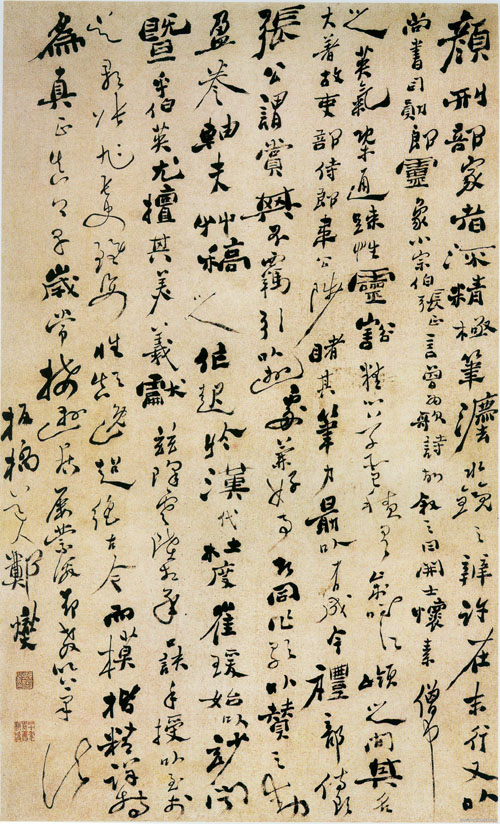 顏刑部家者流精極筆法水鏡之辨許在末行又以
尚書司勳郎靈象小宗伯張正言曾為歌詩故叙之曰開士懷素僧中
之英氣概通疎性靈豁心草聖積有江嶺之間其名
大著故吏部侍郎韋公陟睹其筆力最以有成今禮部侍郎
張公謂賞其不羈引以遊處兼好事者同作歌以贊之動
盈卷軸夫草稿之作起於漢代杜度崔瑗始以妙聞
暨乎伯英尤擅其美羲獻茲降虞陸相承口訣手授以至於
吳郡張旭長史雖姿性顛逸超絕古今而模楷精詳特
為真正真卿早歲常接遊居屢蒙激昂教以筆法
板橋道人鄭燮